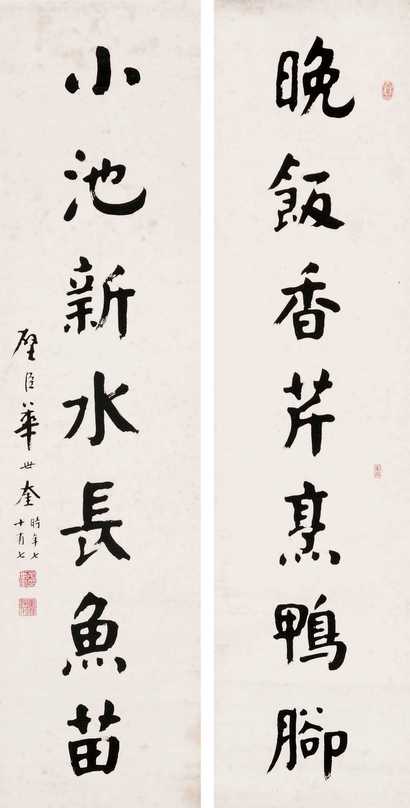 晚飯香芹烹鴨腳
小池新水長魚苗
璧臣華世奎
時年七
十有七